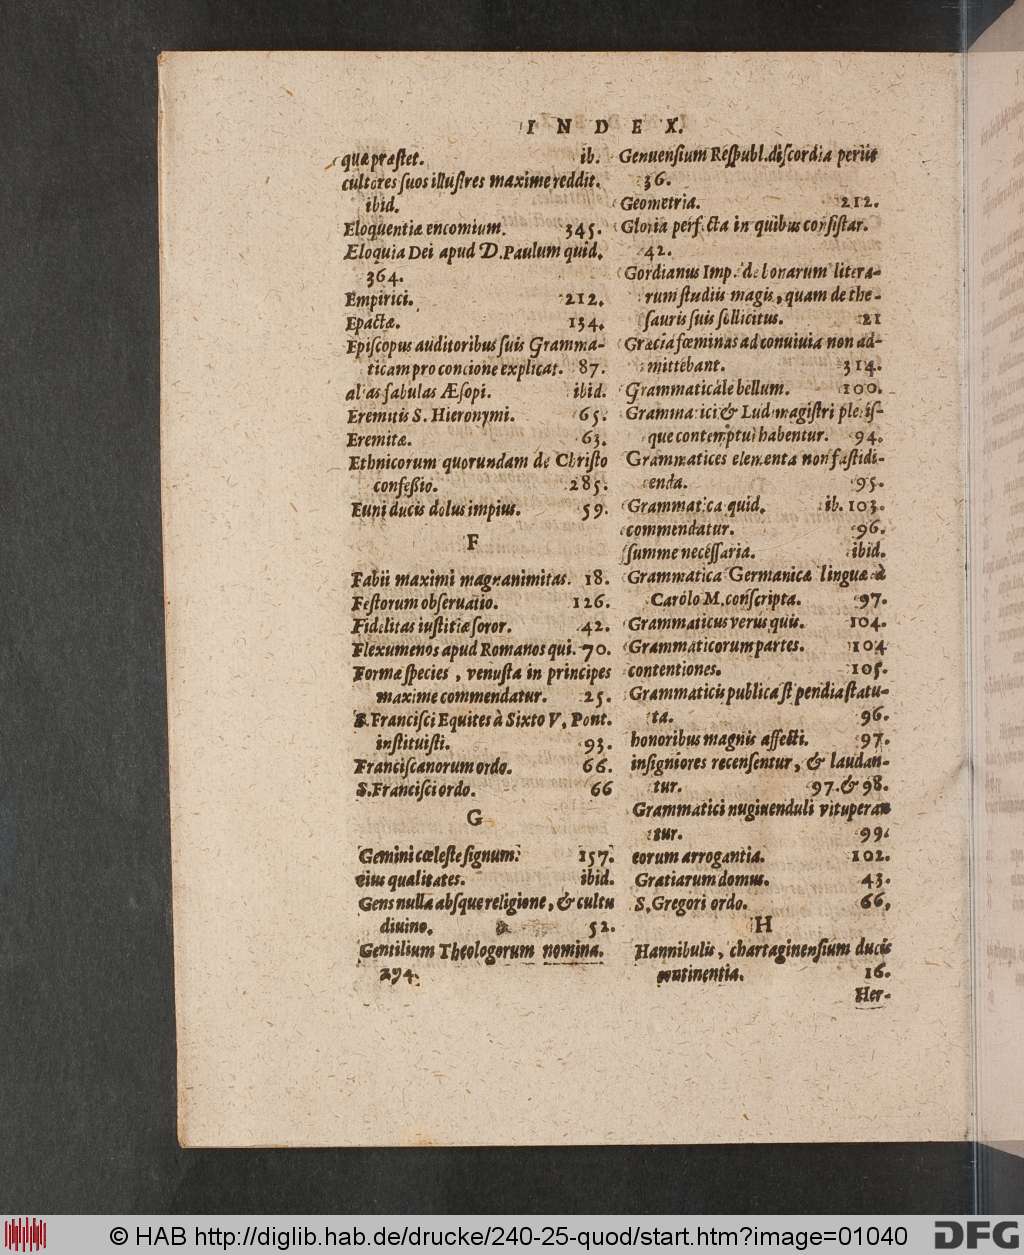 INDEX.
quæ præstet. ib.
cultores suos illustres maxime reddit.
ibid.
Eloquentiæ encomium. 345.
Æloquia Dei apud D. Paulum quid.
364.
Empirici. 212.
Epactæ. 134.
Episcopus auditoribus suis Gramma-
ticam pro concione explicat. 87.
alias fabulas Æsopi. ibid.
Eremitis S. Hieronymi. 65.
Eremitæ. 63.
Ethnicorum quorundam de Christo
confeßio. 285.
Euni ducis dolus impius. 59.
F
Fabii maximi magnanimitas. 18.
Festorum obseruatio. 126.
Fidelitas iustitiæ soror. 42.
Flexumenos apud Romanos qui. 70.
Formæ species, venusta in principes
maxime commendatur. 25.
B. Francisci Equites à Sixto V, Pont.
instituisti. 93.
Franciscanorum ordo. 66.
S. Francisci ordo. 66
G
Gemini cœleste signum. 157.
eius qualitates. ibid.
Gens nulla absque religione, & cultu
diuino. 52.
Gentilium Theologorum nomina.
294.
Genuensium Respubl. discordia periit
36.
Geometria. 212.
Gloria perfecta in quibus consistar.
42.
Gordianus Imp. de bonarum litera-
rum studiis magis, quam de the-
sauris suis sollicitus. 21
Græcia fœminas ad conuiuia non ad-
mittebant. 314.
Grammaticale bellum. 100.
Grammatici & Ludimagistri pleris-
que contemptui habentur. 94.
Grammatices elementa non fastidi-
enda. 95.
Grammatica quid. ib. 103.
commendatur. 96.
summe necessaria. ibid.
Grammatica Germanicæ linguæ à
Carolo M. conscripta. 97.
Grammaticus verus quis. 104.
Grammaticorum partes. 104
contentiones. 105.
Grammaticis publica stipendia statu-
ta. 96.
honoribus magnis affecti. 97.
insigniores recensentur, & laudan-
tur. 97. & 98.
Grammatici nugiuenduli vituperan
tur. 99.
eorum arrogantia. 102.
Gratiarum domus. 43.
S. Gregori ordo. 66,
H
Hannibulis, chartaginensium ducis
continentia. 16.
Her-
© HAB http://diglib.hab.de/drucke/240-25-quod/start.htm?image=01040
DFG